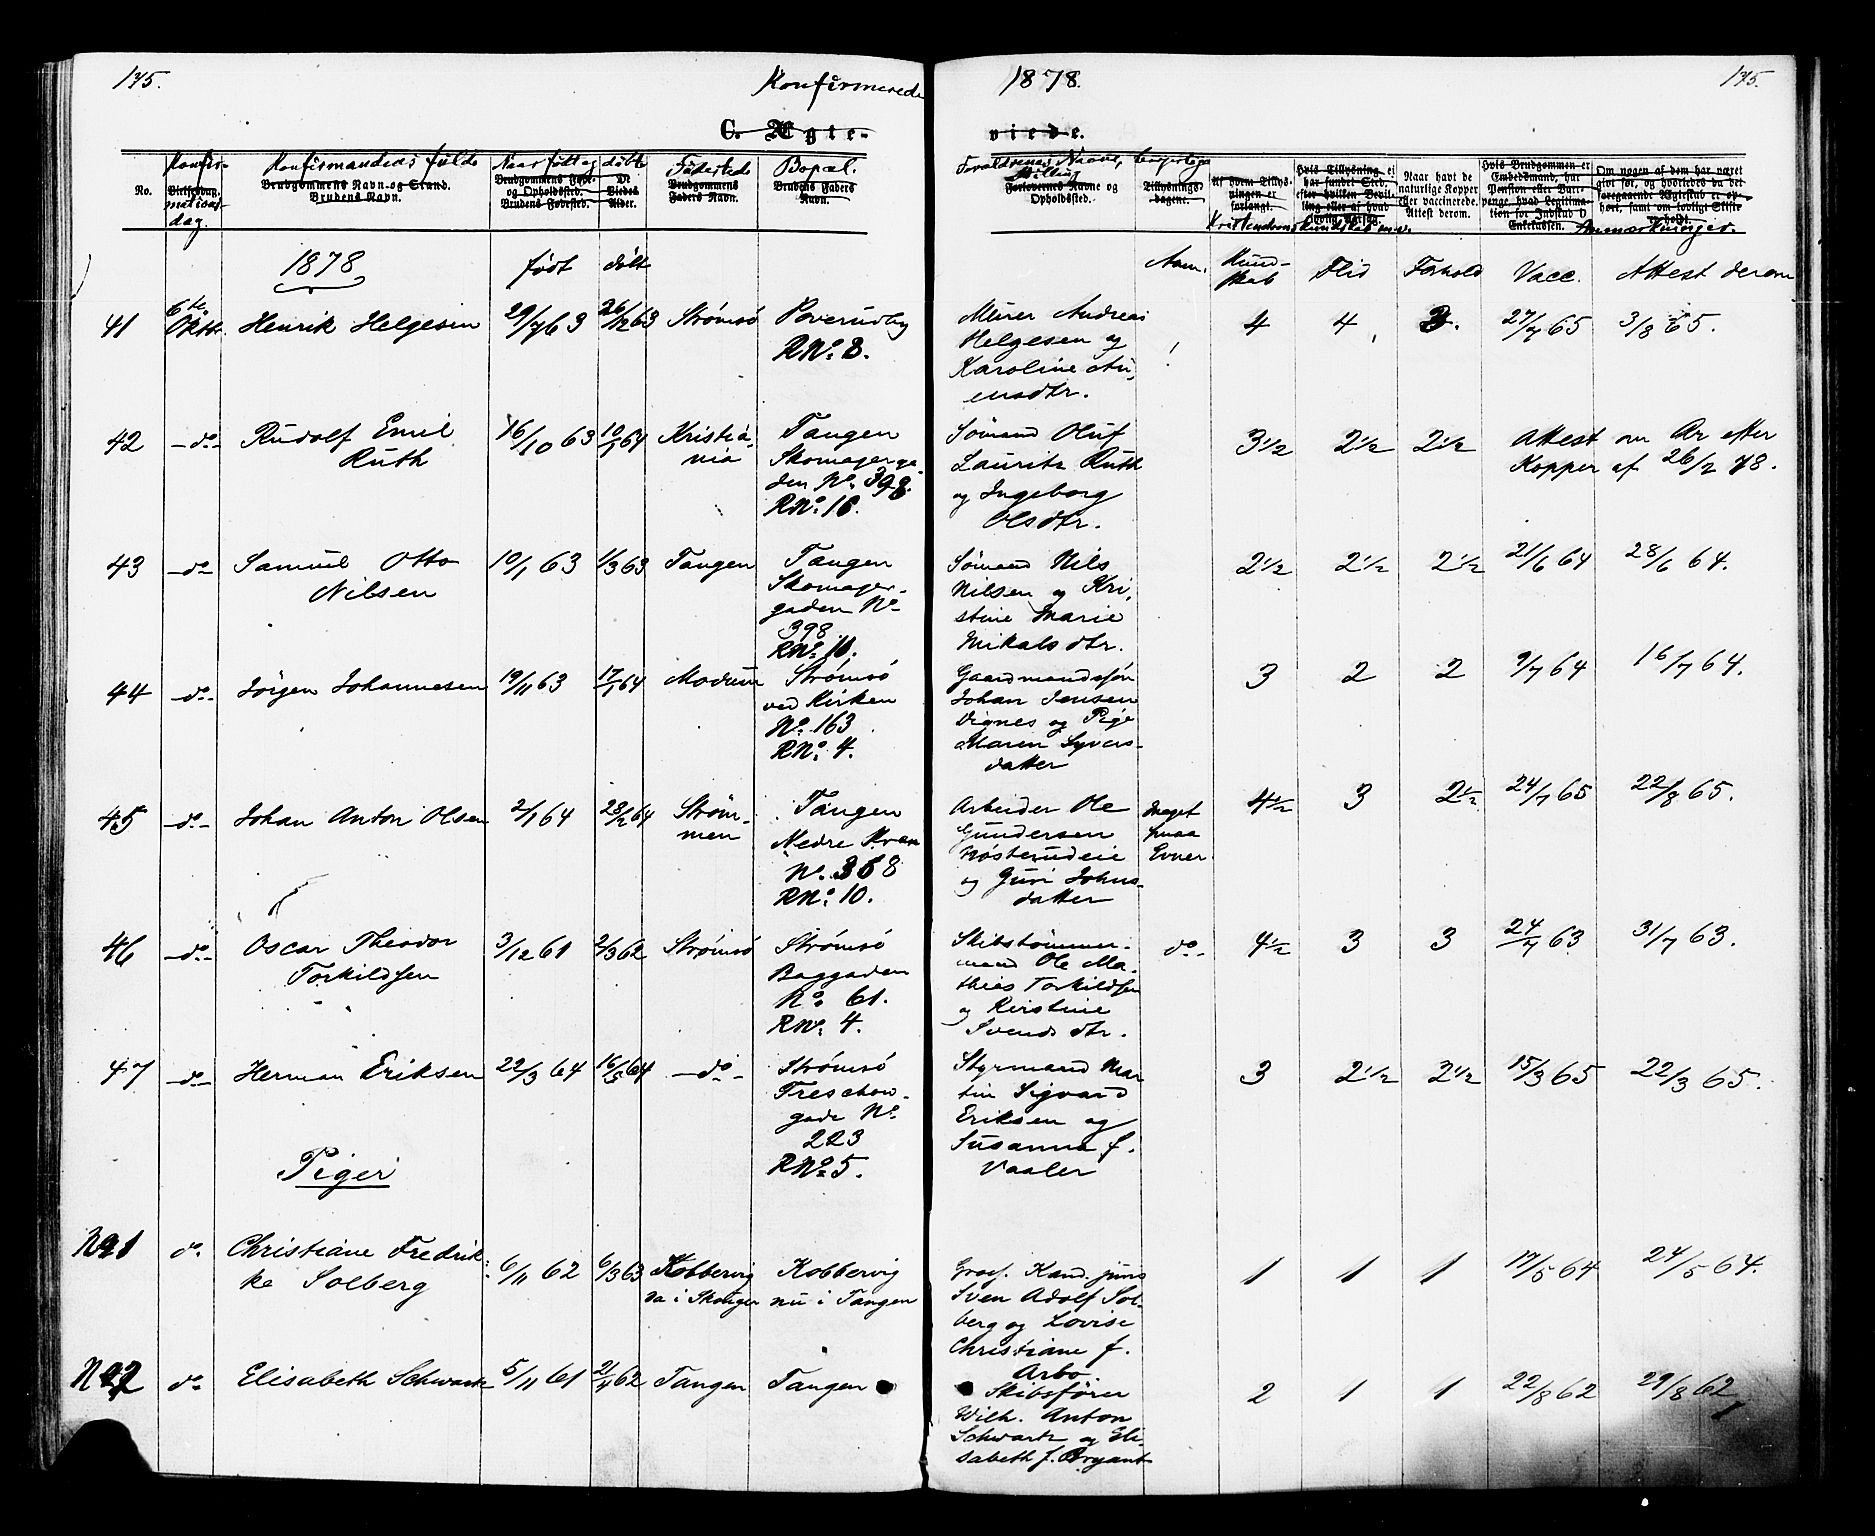 175.
Konfirmerede
1878.
175.
C. Ægte-
viede.
No.
Konfirmationsdag.
Virkelsesdag.
Konfirmandens fulde
Brudgommens Navn og Stand.
Brudens Navn.
Naar født og døbt
Brudgommens Føde- og Opholdssted.
Brudens Fødested.
De Viedes Alder.
Fødested
Brudgommens Faders Navn.
Bopæl.
Brudens Faders Navn.
Forældrenes Navne, borgerlige Stilling
Forlovernes Navne og Opholdssted.
Tillysnings-dagene.
Kristendomskundskab m.v.
Naar havt de naturlige Kopper eller vaccinerede. Attest derom.
Anmærkninger.
1878
født
døbt
Anm.
Kund-
skab
Flid
Forhold
Vacc.
Attest derom
41
6te Oktt.
Henrik Helgesen
29/7 63
26/12 63
Strømsø
Poverudby
RNo. 8.
Murer Andreas
Helgesen og
Karoline An,
ensdtr.
4
4
3.
27/7 65
3/8 65.
42
-do-
Rudolf Emil
Ruth
16/10 63
10/1 64
Kristia,
nia
Tangen
Skomagerga,
den No. 398.
RNo. 10.
Sømand Oluf
Lauritz Ruth
og Ingeborg
Olsdtr.
3 1/2
2 1/2
2 1/2
Attest om Ar efter
Kopper af 26/2 78.
43
-do-
Samuel Otto
Nilsen
10/1 63
1/3 63
Tangen
Tangen
Skomager-
gaden No
398
RNo. 10.
Sømand Nils
Nilsen og Kri,
stine Marie
Mikalsdtr.
2 1/2
2 1/2
2 1/2
21/6 64
28/6 64.
44
-do-
Jørgen Johannesen
19/11 63
17/1 64
Modum
Strømsø
ved Kirken
No. 163
RNo. 4.
Gaardmandssøn
Johan Jensen
Vignes og Pige
Maren Syvers-
datter
3
2
2
9/7 64
16/7 64.
45
-do-
Johan Anton Olsen
2/1 64
28/2 64
Strøm-
men
Tangen
Nedre Kvæn
No. 358
RNo. 10.
Arbeider Ole
Gundersen
Nøsterudeie
og Guri Johns-
datter
Meget
smaa
Evner
4 1/2
3
2 1/2
24/7 65
22/8 65.
46
-do-
Oscar Theodor
Torkildsen
3/12 61
2/3 62
Strømsø
Strømsø
Baggaden
No 61.
RNo. 4.
Skibstømmer-
mand Ole Ma-
thies Torkildsen
og Kirstine
Svendsdtr.
do-
4 1/2
3
3
24/7 63
31/7 63.
47
-do-
Herman Eriksen
22/3 64
16/5 64
-do-
Strømsø
Treschow-
gade No.
223
RNo. 5.
Styrmand Mar
tin Sigvard
Eriksen og
Susanna f.
Vaaler
3
2 1/2
2 1/2
15/3 65
22/3 65.
Piger
No 1
do.
Christiane Fredrik-
ke Solberg
6/11 62
6/3 63
Kobbervig
da i Skouger
Kobbervig
nu i Tangen
Proc. Kand. juris
Sven Adolf Sol-
berg og Lovise
Christiane f.
Arbo.
1
1
1
17/5 64
24/5 64.
No 2
do
Elisabeth Schwartz
5/11 61
21/4 62
Tangen
Tangen
Skibsfører
Wilh. Anton
Schwartz og Eli-
sabeth f. Bryant
2
1
1
22/8 62
29/8 62